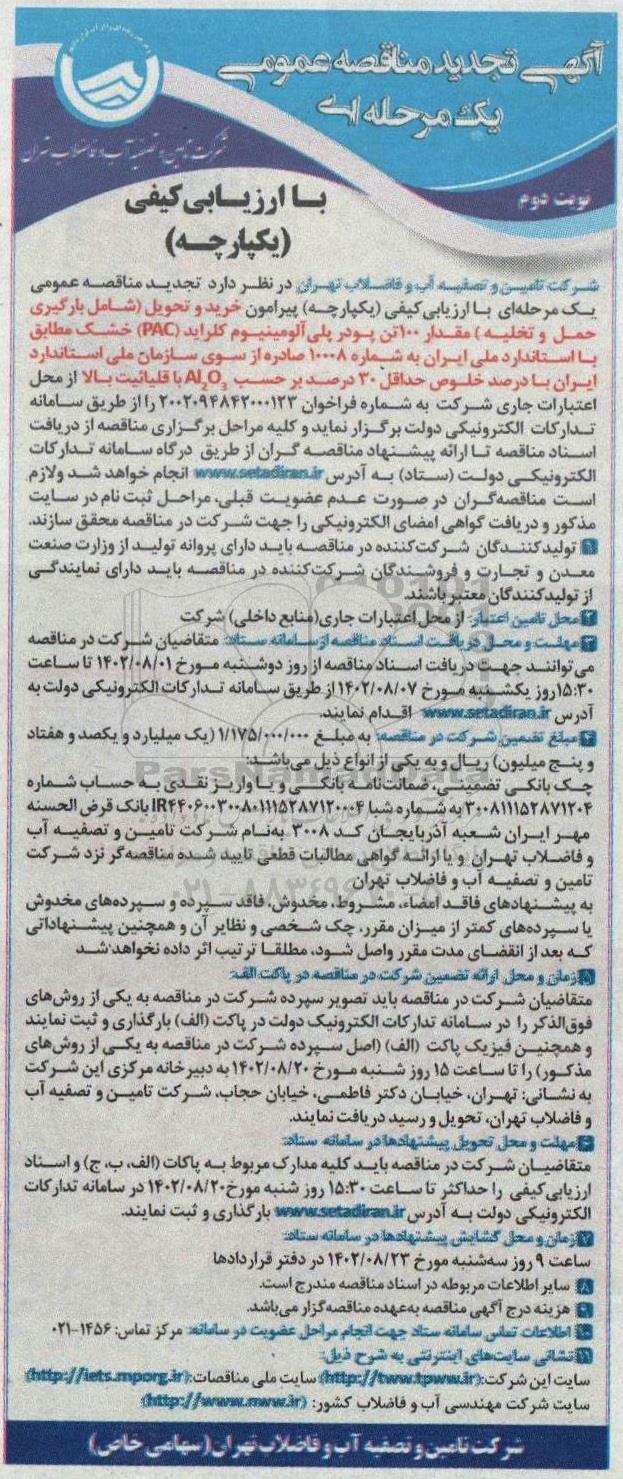 آگهی تجدید مناقصه عمومی
یک مرحله ای
شرکت تامین و تصفیه آب و فاضلاب تهران
نوبت دوم
با ارزیابی کیفی
(یکپارچه)
شرکت تامین و تصفیه آب و فاضلاب تهران در نظر دارد تجدید مناقصه عمومی
یک مرحله‌ای با ارزیابی کیفی (یکپارچه) پیرامون خرید و تحویل (شامل بارگیری
حمل و تخلیه) مقدار ۱۰۰تن پودر پلی آلومینیوم کلراید (PAC) خشک مطابق
با استاندارد ملی ایران به شماره ۱۰۰۰۸ صادره از سوی سازمان ملی استاندارد
ایران با درصد خلوص حداقل ۳۰ درصد بر حسب Al₂O₃ با قلیائیت بالا از محل
اعتبارات جاری شرکت به شماره فراخوان ۲۰۰۲۰۹۴۸۴۲۰۰۰۱۲۳ را از طریق سامانه
تدارکات الکترونیکی دولت برگزار نماید و کلیه مراحل برگزاری مناقصه از دریافت
اسناد مناقصه تا ارائه پیشنهاد مناقصه گران از طریق درگاه سامانه تدارکات
الکترونیکی دولت (ستاد) به آدرس www.setadiran.ir انجام خواهد شد ولازم
است مناقصه‌گران در صورت عدم عضویت قبلی، مراحل ثبت نام در سایت
مذکور و دریافت گواهی امضای الکترونیکی را جهت شرکت در مناقصه محقق سازند.
۱ تولیدکنندگان شرکت‌کننده در مناقصه باید دارای پروانه تولید از وزارت صنعت
معدن و تجارت و فروشندگان شرکت‌کننده در مناقصه باید دارای نمایندگی
از تولیدکنندگان معتبر باشند.
۲ محل تامین اعتبار: از محل اعتبارات جاری(منابع داخلی) شرکت
۳ مهلت و محل دریافت اسناد مناقصه از سامانه ستاد: متقاضیان شرکت در مناقصه
می‌توانند جهت دریافت اسناد مناقصه از روز دوشنبه مورخ ۱۴۰۲/۰۸/۰۱ تا ساعت
۱۵:۳۰روز یکشنبه مورخ ۱۴۰۲/۰۸/۰۷ از طریق سامانه تدارکات الکترونیکی دولت به
آدرس www.setadiran.ir اقدام نمایند.
۴ مبلغ تضمین شرکت در مناقصه: به مبلغ ۱/۱۷۵/۰۰۰/۰۰۰ (یک میلیارد و یکصد و هفتاد
و پنج میلیون) ریال و به یکی از انواع ذیل می‌باشد:
چک بانکی تضمینی، ضمانت‌نامه بانکی و یا واریز نقدی به حساب شماره
به شماره شبا بانک قرض الحسنه
مهر ایران شعبه آذربایجان کد ۳۰۰۸ به‌نام شرکت تامین و تصفیه آب
و فاضلاب تهران و یا ارائه گواهی مطالبات قطعی تایید شده مناقصه‌گر نزد شرکت
تامین و تصفیه آب و فاضلاب تهران
به پیشنهادهای فاقد امضاء، مشروط، مخدوش، فاقد سپرده و سپرده‌های مخدوش
یا سپرده‌های کمتر از میزان مقرر، چک شخصی و نظایر آن و همچنین پیشنهاداتی
که بعد از انقضای مدت مقرر واصل شود، مطلقا ترتیب اثر داده نخواهد شد
۵ زمان و محل ارائه تضمین شرکت در مناقصه در پاکت الف:
متقاضیان شرکت در مناقصه باید تصویر سپرده شرکت در مناقصه به یکی از روش‌های
فوق‌الذکر را در سامانه تدارکات الکترونیک دولت در پاکت (الف) بارگذاری و ثبت نمایند
و همچنین فیزیک پاکت (الف) (اصل سپرده شرکت در مناقصه به یکی از روش‌های
مذکور) را تا ساعت ۱۵ روز شنبه مورخ ۱۴۰۲/۰۸/۲۰ به دبیرخانه مرکزی این شرکت
به نشانی: تهران، خیابان دکتر فاطمی، خیابان حجاب، شرکت تامین و تصفیه آب
و فاضلاب تهران، تحویل و رسید دریافت نمایند.
۶ مهلت و محل تحویل پیشنهادها در سامانه ستاد:
متقاضیان شرکت در مناقصه باید کلیه مدارک مربوط به پاکات (الف، ب، ج) و اسناد
ارزیابی‌کیفی را حداکثر تا ساعت ۱۵:۳۰ روز شنبه مورخ۱۴۰۲/۰۸/۲۰ در سامانه تدارکات
الکترونیکی دولت به آدرس www.setadiran.ir بارگذاری و ثبت نمایند.
۷ زمان و محل گشایش پیشنهادها در سامانه ستاد:
ساعت ۹ روز سه‌شنبه مورخ ۱۴۰۲/۰۸/۲۳ در دفتر قراردادها
۸ سایر اطلاعات مربوطه در اسناد مناقصه مندرج است.
۹ هزینه درج آگهی مناقصه به‌عهده مناقصه‌گزار می‌باشد.
۱۰ اطلاعات تماس سامانه ستاد جهت انجام مراحل عضویت در سامانه: مرکز تماس: ۱۴۵۶-۰۲۱
۱۱ نشانی سایت‌های اینترنتی به شرح ذیل:
سایت این شرکت:(http://tww.tpww.ir) سایت ملی مناقصات:(http://iets.mporg.ir)
سایت شرکت مهندسی آب و فاضلاب کشور: (http://www.nww.ir)
شرکت تامین و تصفیه آب و فاضلاب تهران (سهامی خاص)